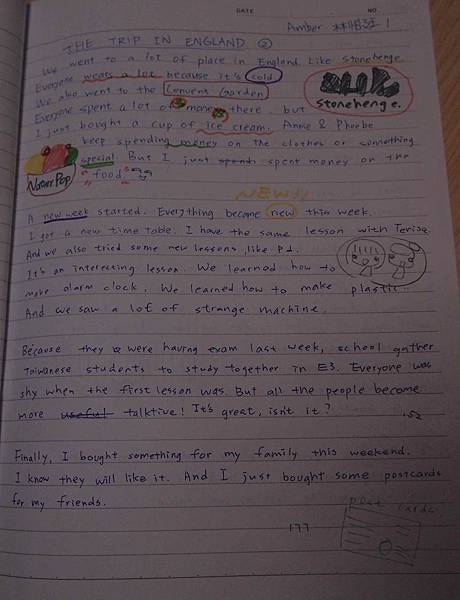 DATE NO.
Amber 林 1
THE TRIP IN ENGLAND ②
We went to a lot of place in England like Stonehenge.
Everyone wears a lot because it's cold
We also went to the Convent Garden
Everyone spent a lot of money there. but
Stonehenge.
I just bought a cup of ice cream. Annie & Phoebe
keep spending money on the clothes or something
special. But I just spent money on the
"food"
NEW!!
A new week started. Everything became new this week.
I got a new time table. I have the same lesson with
And we also tried some new lessons, like P.d.
It's an interesting lesson. We learned how to
make alarm clock. We learned how to make plastic...
And we saw a lot of strange machine.
Because they were having exam last week, school gather
Taiwanese students to study together in E3. Everyone was
shy when the first lesson was. But all the people become
more useful talktive! It's great, isn't it?
152
Finally, I bought something for my family this weekend.
I know they will like it. And I just bought some postcards
for my friends.
post cards
177